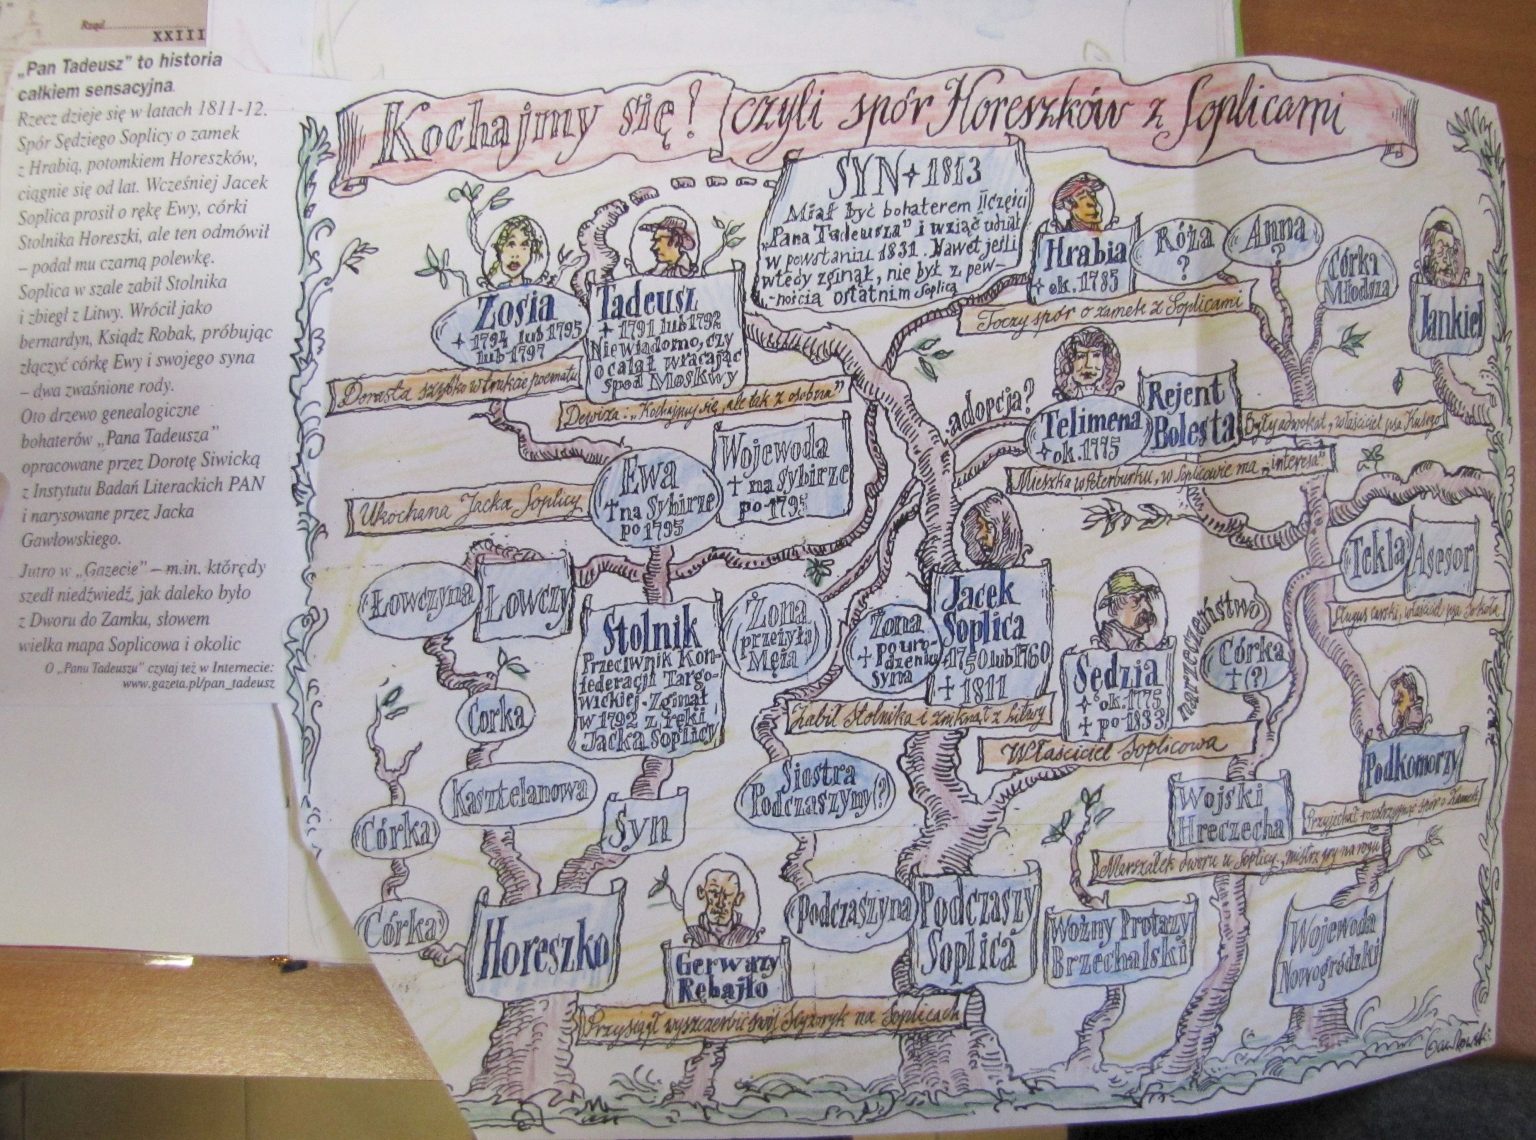 Rząd
XXIII
„Pan Tadeusz" to historia
całkiem sensacyjna.
Rzecz dzieje się w latach 1811-12.
Spór Sędziego Soplicy o zamek
z Hrabią, potomkiem Horeszków,
ciągnie się od lat. Wcześniej Jacek
Soplica prosił o rękę Ewy, córki
Stolnika Horeszki, ale ten odmówił
– podał mu czarną polewkę.
Soplica w szale zabił Stolnika
i zbiegł z Litwy. Wrócił jako
bernardyn, Ksiądz Robak, próbując
złączyć córkę Ewy i swojego syna
– dwa zwaśnione rody.
Oto drzewo genealogiczne
bohaterów „Pana Tadeusza"
opracowane przez Dorotę Siwicką
z Instytutu Badań Literackich PAN
i narysowane przez Jacka
Gawłowskiego.
Jutro w „Gazecie" – m.in. którędy
szedł niedźwiedź, jak daleko było
z Dworu do Zamku, słowem
wielka mapa Soplicowa i okolic
O „Panu Tadeuszu" czytaj też w Internecie:
www.gazeta.pl/pan_tadeusz
Kochajmy się! czyli spór Horeszków z Soplicami
SYN + 1813
Miał być bohaterem II części
„Pana Tadeusza" i wziąć udział
w powstaniu 1831. Nawet jeśli
wtedy zginął, nie był z pew-
-nością ostatnim Soplicą
Zosia
+ 1794 lub 1795
lub 1797
Dorasta szybko w trakcie poematu
Tadeusz
+ 1791 lub 1792
Nie wiadomo, czy
ocalał wracając
spod Moskwy
Dewiza: „Kochajmy się, ale tak z osobna"
Hrabia
+ ok. 1785
Toczy spór o zamek z Soplicami
Róża
?
Anna
?
Córka
Młodsza
Jankiel
adopcja?
Telimena
+ ok. 1775
Rejent
Bolesta
Były adwokat, właściciel psa Kusego
Mieszka w Peterburku, w Soplicowie ma „interesa"
Ewa
† na Sybirze
po 1795
Wojewoda
† na Sybirze
po 1795
Ukochana Jacka Soplicy
Łowczyna
Łowczy
Stolnik
Przeciwnik Kon-
federacji Targo-
wickiej. Zginął
w 1792 z ręki
Jacka Soplicy
Żona
(przeżyła)
Męża
Żona
† po uro-
dzeniu
syna
Jacek
Soplica
+ 1750 lub 1760
† 1811
Zabił Stolnika i zniknął z Litwy
Sędzia
+ ok. 1775
† po 1833
Właściciel Soplicowa
narzeczeństwo
Córka
† (?)
Tekla
Asesor
Sługus carski, właściciel psa Sokoła
Podkomorzy
Przyjechał rozstrzygnąć spór o Zamek
Córka
Kasztelanowa
Syn
Córka
Córka
Horeszko
Siostra
Podczaszyny(?)
Podczaszyna
Podczaszy
Soplica
Gerwazy
Rębajło
Przysiągł wyszczerbić swój Scyzoryk na Soplicach
Woźny Protazy
Brzechalski
Wojski
Hreczecha
Marszałek dworu u Soplicy, mistrz gry na rogu
Wojewoda
Nowogródzki
Gawłowski